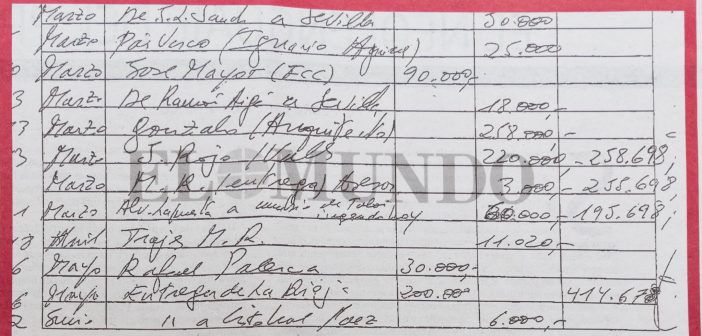 Marzo De J.L. Sanch a Sevilla 30.000
Marzo País Vasco (Ignacio ) 25.000
Marzo Jose Mayor (FCC) 90.000,-
3 Marzo De Ramón Aige a Sevilla 18.000,-
13 Marzo Gonzalo (Arquitecto) 258.000,-
3 Marzo J. Rojo 220.000,- 258.698,-
Marzo M. R. (entrega) Asesor 3.000,- 255.698,-
1 Marzo Alv. Lapuerta a de ingreso hoy 60.000,- 195.698,-
Abril Traje M.R. 11.020,-
6 Mayo Rafael Palencia 30.000,-
6 Mayo Entrega de La Rioja 200.000,- 414.678
2 Junio " a Cristobal Paez 6.000,-
EL MUNDO